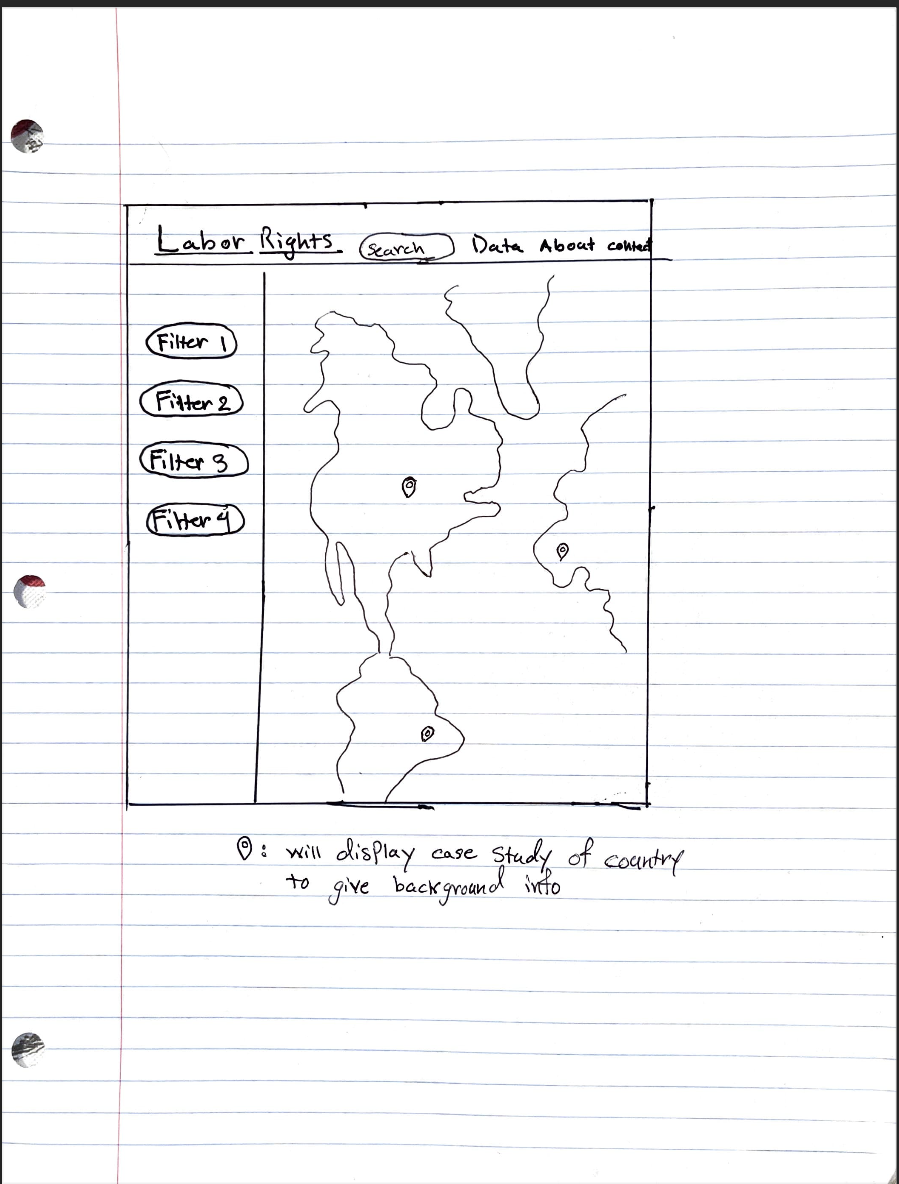 Labor Rights Search Data About contact
Filter 1
Filter 2
Filter 3
Filter 4
: will display case study of country
to give background info